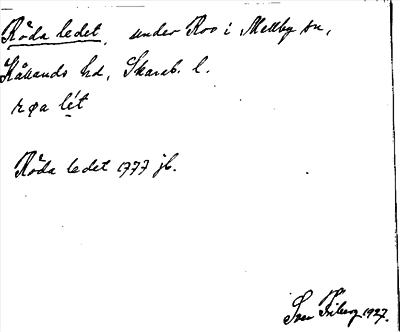 Röda ledet, under Roo i Mellby sn,
Kållands hd, Skarab. l.
røa lèt
Röda ledet 1777 jb.
Sven Friberg 1927.